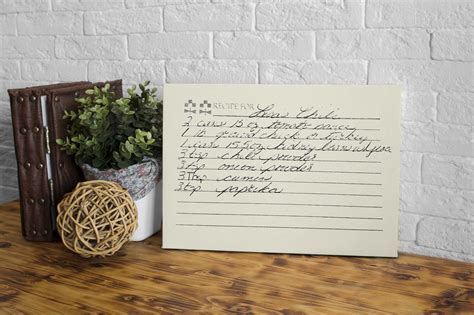 RECIPE FOR Lora's Chili
2 cans 15 oz. tomato sauce
1 lb ground chuck or turkey
1 cans 15.5 oz kidney beans
3 tsp chili powder
3 tsp onion powder
3 tsp cumin
3 tsp paprika